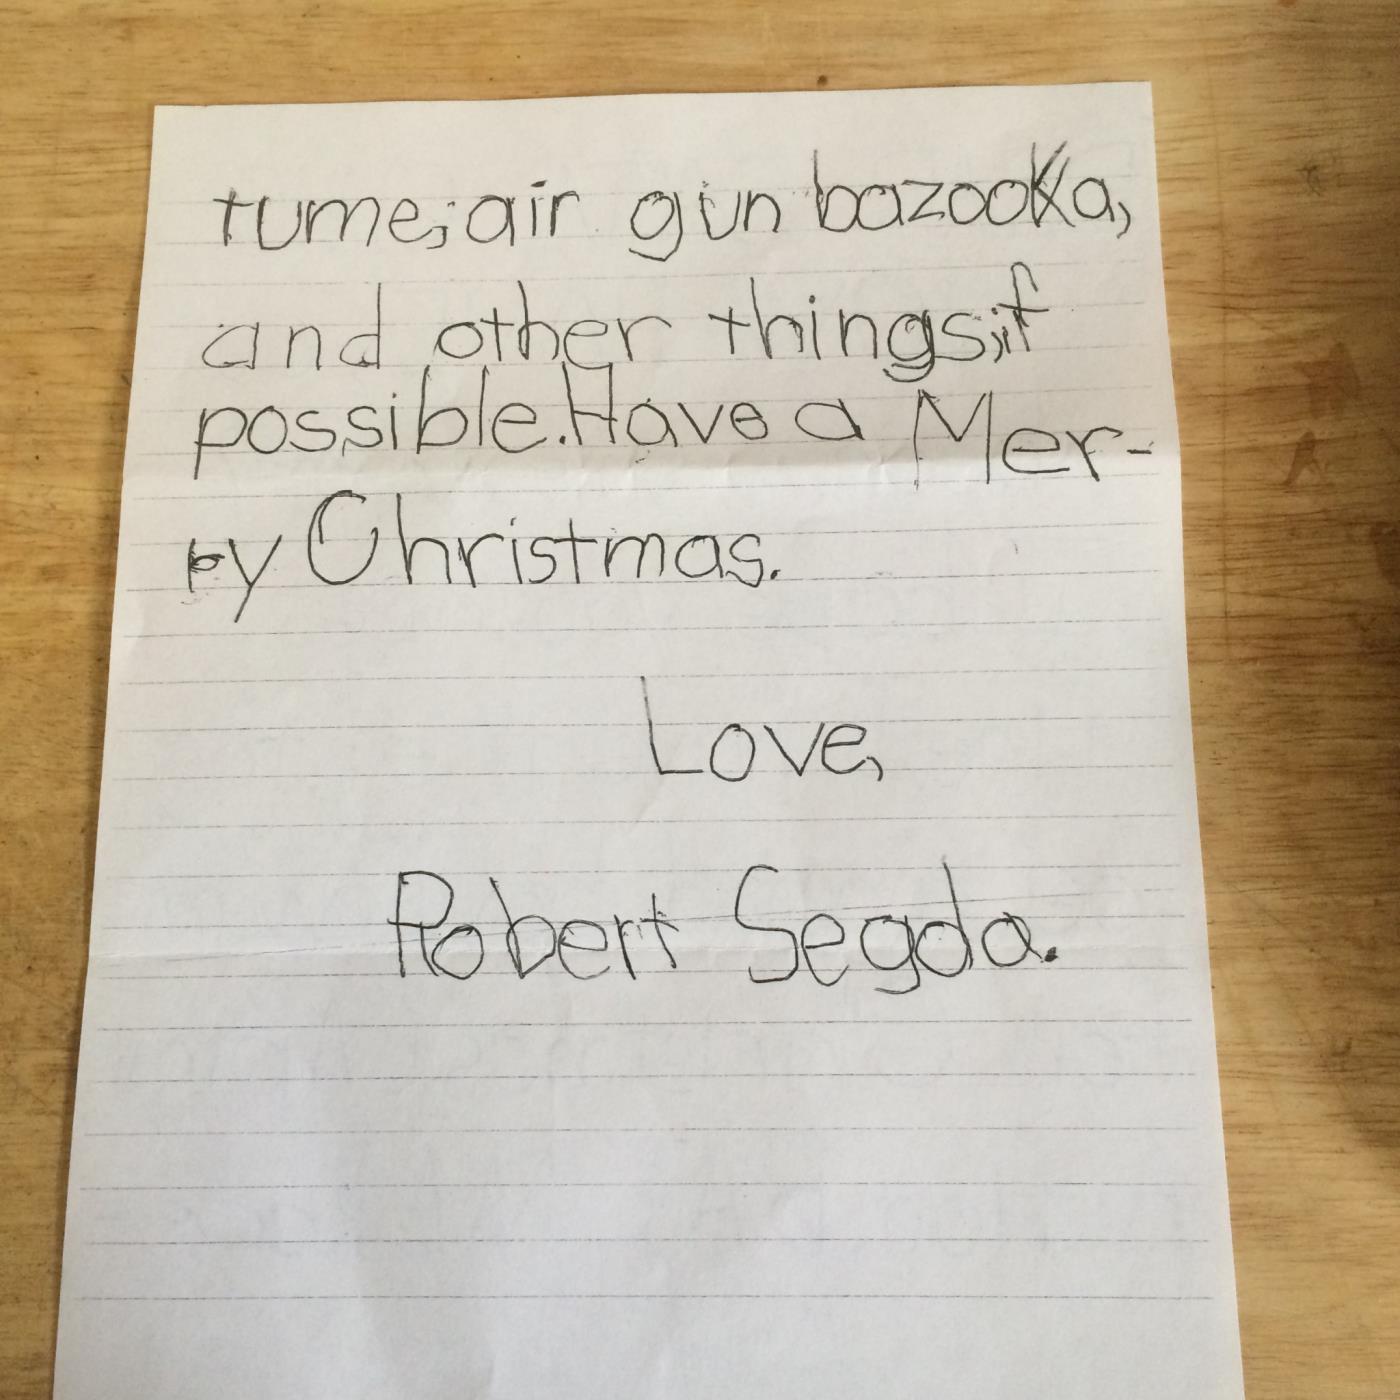 tume, air gun bazooka,
and other things, if
possible. Have a Mer-
ry Christmas.
Love,
Robert Segda.